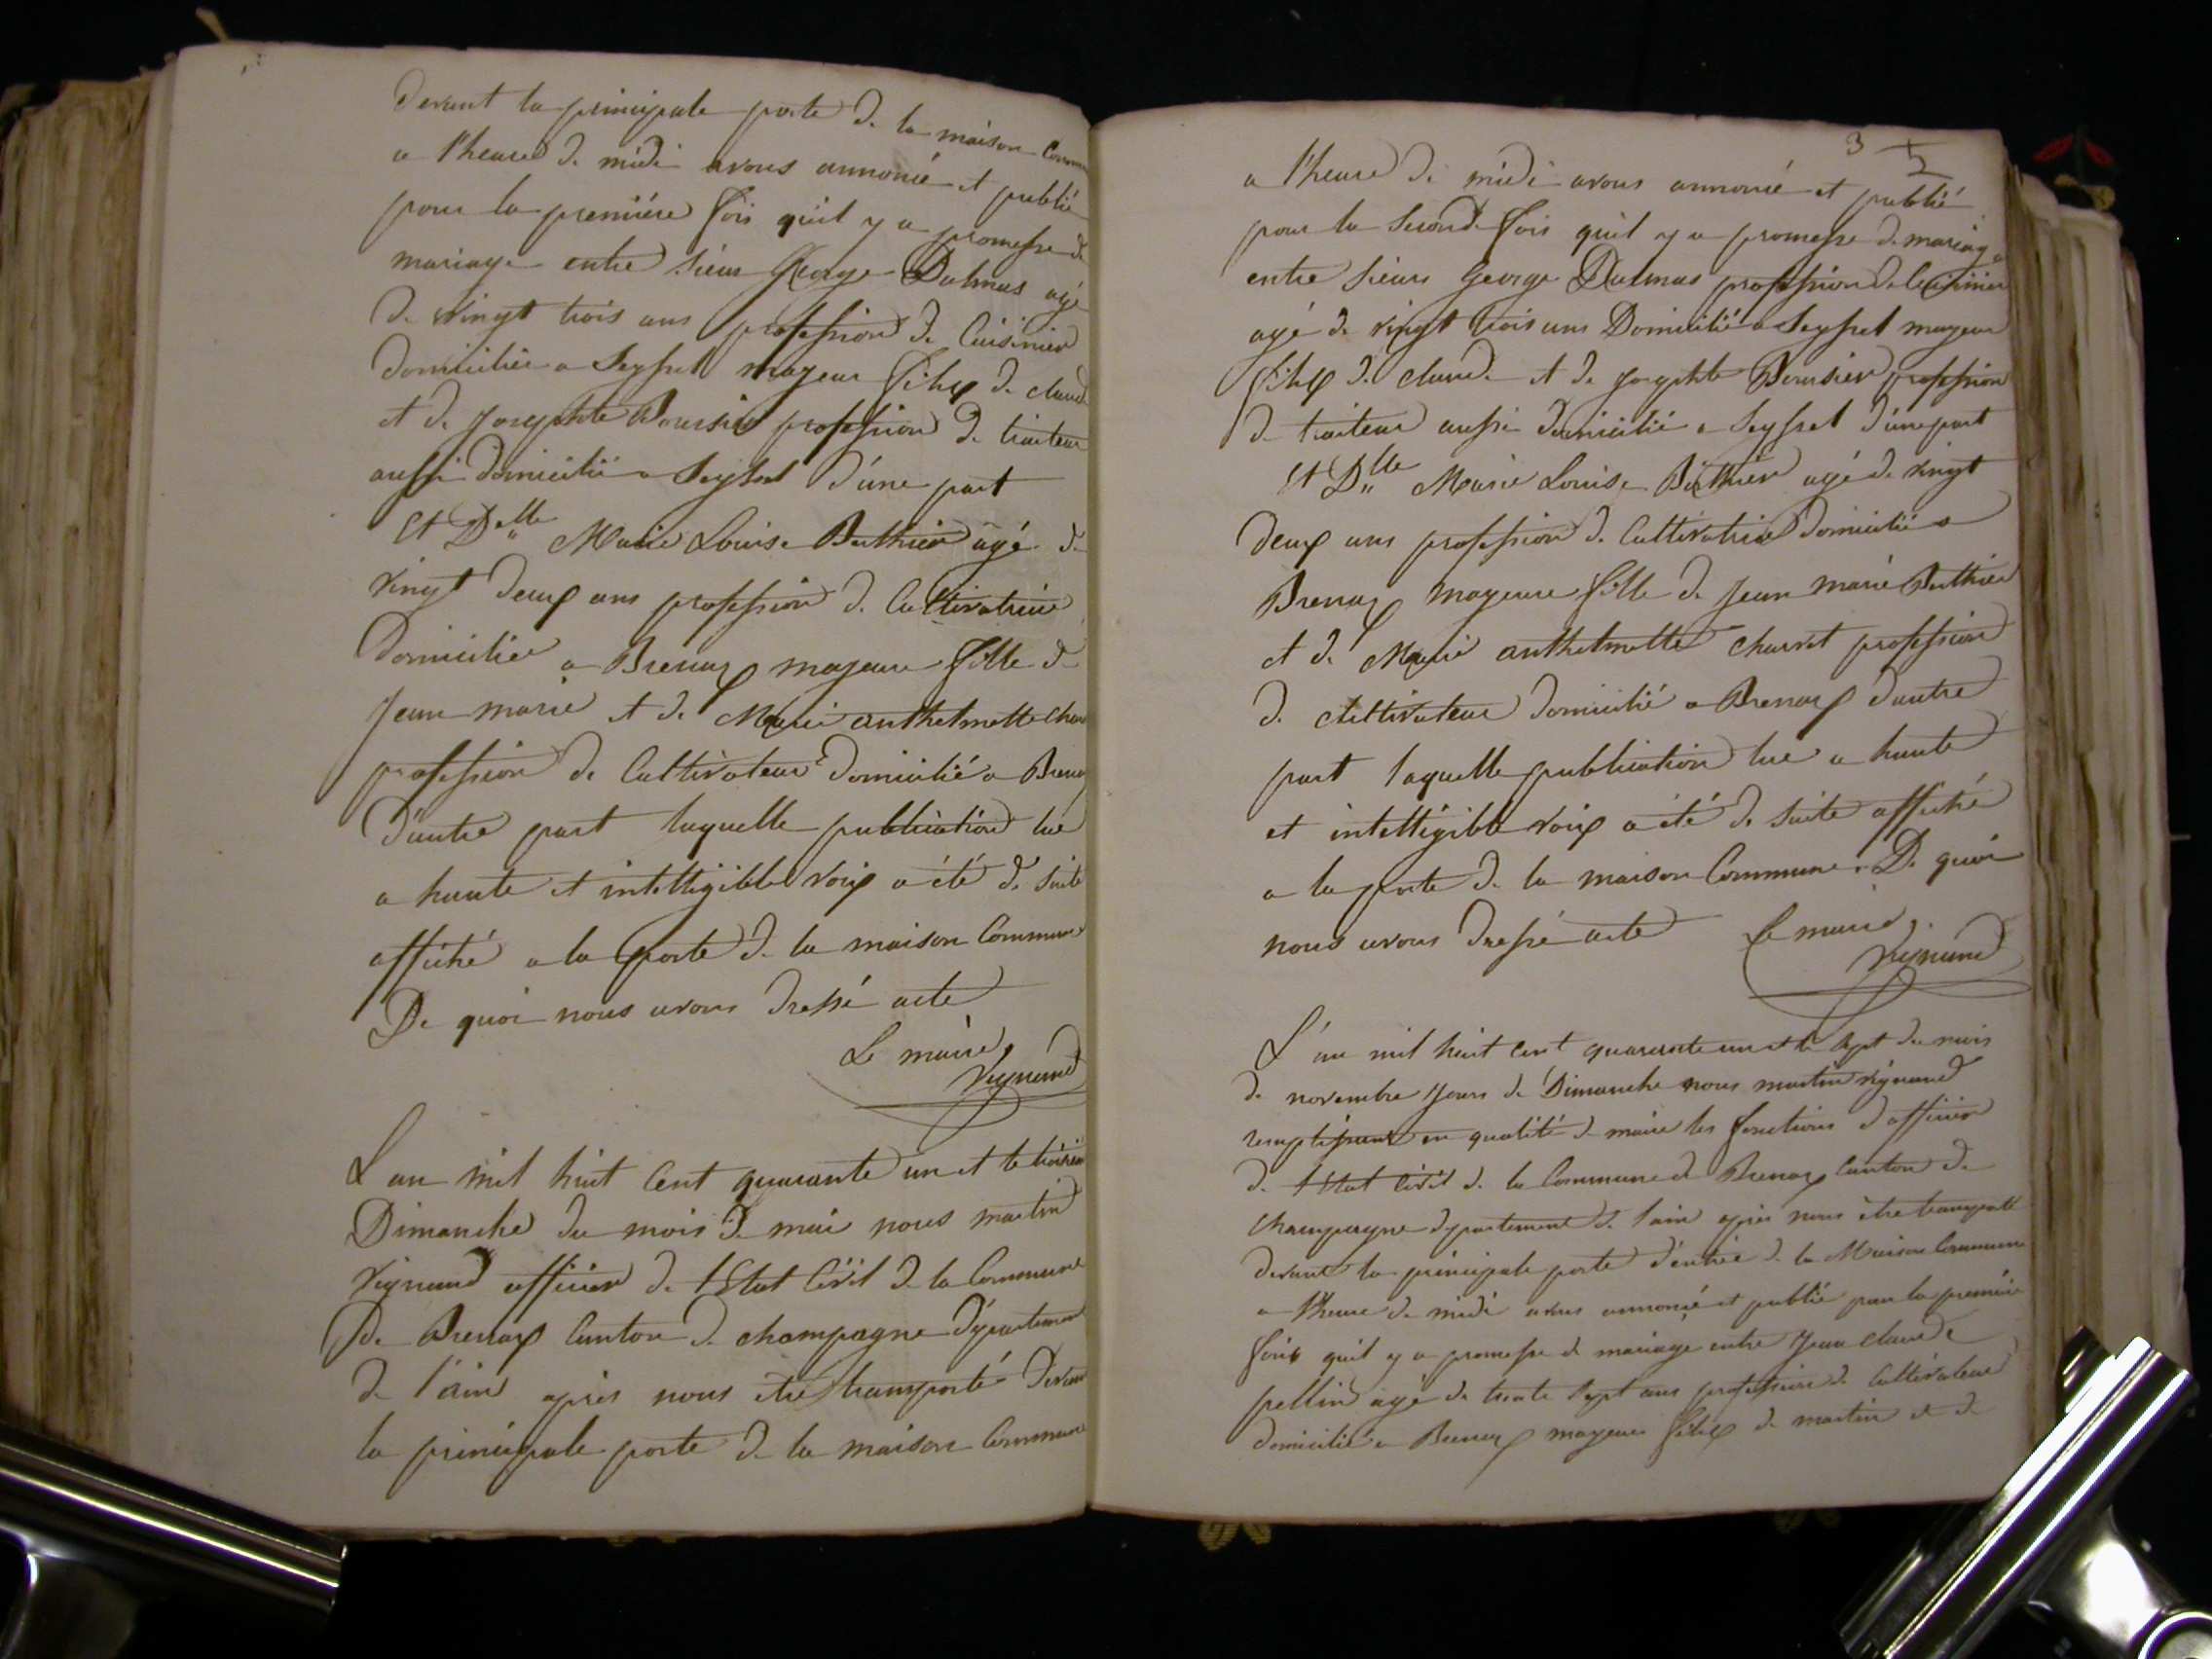 devant la principale porte de la maison comm
a l'heure de midi avons annoncé et publié
pour la premiére fois quil y a promesse de
mariage entre sieur George Dalmas agé
de vingt trois ans profession de Cuisinier
domicilié a Seyssel majeur fils de claude
et de Josephte Boursier profession de traiteur
aussi domicilié a Seyssel d'une part
Et Delle Marie Louise Berthier agé de
vingt deux ans profession de Cultivatrice
Domicilié a Brenaz majeure fille de
Jean marie et de Marie anthelmette Char
profession de Cultivateur domicilié a Brenaz
d'autre part laquelle publication lue
a haute et intelligible voix a été de suite
affiché a la porte de la maison Commune
De quoi nous avons dressé acte
Le maire,
Vignand
L'an mil huit Cent quarante un et le troisiém
Dimanche du mois de mai nous martin
Vignand officier de l'Etat Civil de la Commune
De Brenaz Canton de champagne département
de l'ain après nous être transporté devant
la principale porte de la maison Commune
3
a l'heure de midi avons annoncé et publié
pour la seconde fois quil y a promesse de mariage
entre sieur George Dalmas profession de Cuisinier
agé de vingt trois ans Domicilié a Seyssel majeur
fils de claude et de Josephte Boursier profession
de traiteur aussi domicilié a Seyssel d'une part
Et Dlle Marie Louise Berthier agé de vingt
deux ans profession de Cultivatrice domicilié a
Brenaz majeure fille de Jean marie Berthier
et de Marie anthelmette charvet profession
de Cultivateur domicilié a Brenaz d'autre
part laquelle publication lue a haute
et intelligible voix a été de suite affiché
a la porte de la maison Commune. De quoi
nous avons dressé acte Le maire,
Vignand
L'an mil huit cent quarante un et le sept du mois
de novembre jour de Dimanche nous martin vignand
remplissant en qualité de maire les fonctions d'officier
de l'Etat Civil de la Commune de Brenaz Canton de
Champagne département de l'ain après nous être transporté
devant la principale porte d'entrée de la Maison Commune
a l'heure de midi avons annoncé et publié pour la premiére
fois quil y a promesse de mariage entre Jean claude
pellin agé de trente sept ans profession de Cultivateur
domicilié a Brenaz majeur fils de martin et de